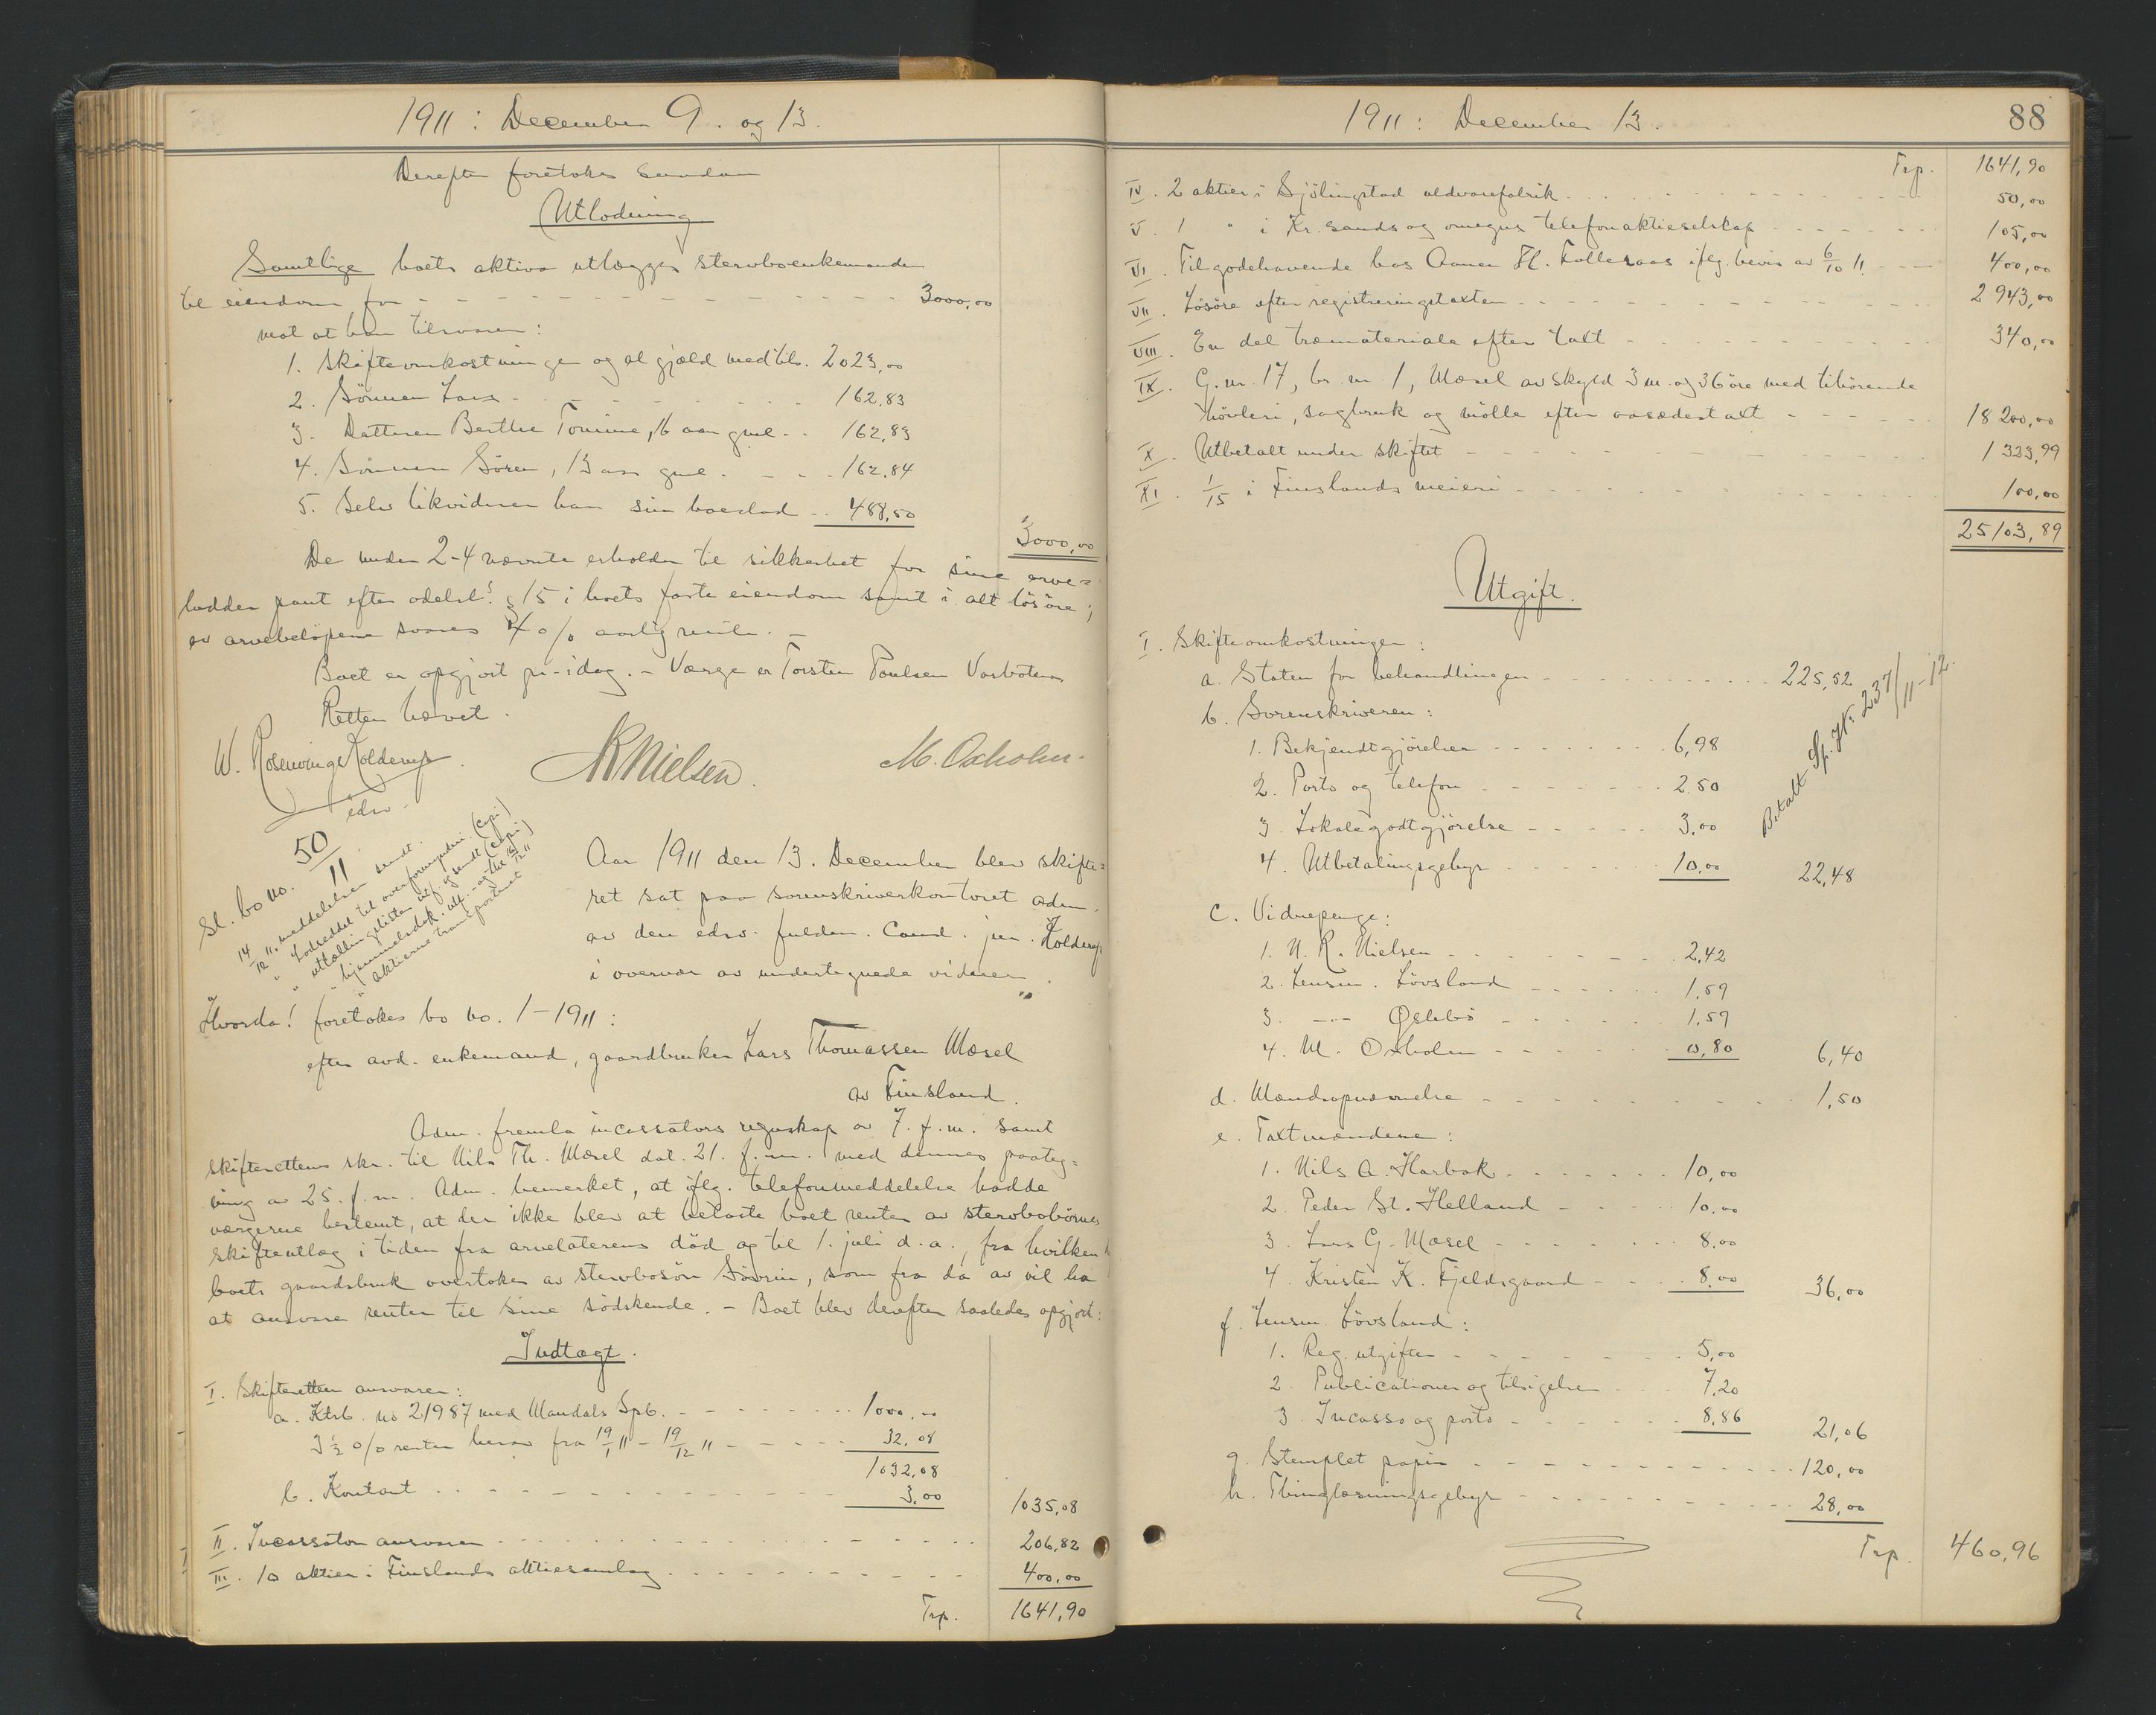 1911: December 9. og 13.
Derefter foretokes saadan
Utlodning
Samtlige boets aktiva utlægges stervboenkemanden
til eiendom for - - - 3000,00
mot at han tilsvarer:
1. Skifteomkostninger og al gjæld med tils. 2023,00
2. Sønnen Lars - - - 162.83
3. Datteren Berthe Tomine, 16 aar gml. - - 162,83
4. Sønnen Sören, 13 aar gml. - - 162,84
5. Selv likviderer han sin boeslod - - 488,50
3000,00
De under 2-4 nævnte erholder til sikkerhet for sine arve=
lodder pant efter odelsl. § 15 i boets faste eiendom samt i alt lösöre;
av arvebelöpene svares 4 % aarlig rente. -
Boet er opgjort pr. idag. - Værge er Torsten Poulsen
Retten hævet.
W. Rosenvinge Kolderup
edsv.
N R Nielsen.
M. Oxholm.
Sl. bo no. 50/11
14/12 11. meddelelser sendt.
" Lodseddel til overformynderi. (Copi)
" utlodningslisten utf. og sendt (Copi)
" hjemmelsdok. utf. - og thl. 12/12 11
" aktierne transporteret
Aar 1911 den 13. December blev skifte=
ret sat paa sorenskriverkontoret adm.
av den edsv. fuldm. Cand. jur. Kolderup
i overvær av undertegnede vidner.
Hvorda! foretokes bo no. 1-1911:
efter avd. enkemand, gaardbruker Lars Thomassen Mæsel
av Finsland.
Adm. fremla incassators regnskap av 7. f. m. samt
skifterettens skr. til Nils Th. Mæsel dat. 21. f. m. med dennes paateg=
ning av 25. f. m. Adm. bemerket, at iflg. telefonmeddelelse hadde
værgerne bestemt, at der ikke blev at belaste boet renter av stervbobörnes
skifteutlæg i tiden fra arvelaterens död og til 1. juli d. a., fra hvilken
boets gaardsbruk overtokes av stervbosön Sövrin, som fra da av vil ha
at ansvare renter til sine södskende. - Boet blev derefter saaledes opgjort:
Indtægt.
I. Skifteretten ansvarer:
a. Ktrb. no 21987 med Mandals Spb. - - - 1000,00
3 1/2 % renter herav fra 19/1 11 - 19/12 11 - - - 32,08
1032,08
b. Kontant - - - 3,00 1035,08
II. Incassator ansvarer - - - 206,82
III. 10 aktier i Finslands aktiesamlag - - - 400,00
Trp. 1641,90
1911: December 13.
88
Trp. 1641,90
IV. 2 aktier i Sjölingstad uldvarefabrik - - - 50,00
V. 1 " i Kr.sands og omegns telefonaktieselskap - - - 105,00
VI. Tilgodehavende hos Aanen H. Folleraas iflg. bevis av 6/10 11 - - 400,00
VII. Lösöre efter registreringstaxten - - - 2 943,00
VIII. En del træmateriale efter taxt - - - 340,00
IX. G.nr. 17, br.nr. 1, Mæsel av skyld 3 m. og 36 öre med tilhörende
hövleri, sagbruk og mölle efter aasædestaxt - - - 18 200,00
X. Utbetalt under skiftet - - - 1 323,99
XI. 1/15 i Finslands meieri - - - 100,00
25103,89
Utgift.
I. Skifteomkostninger:
a. Staten for behandlingen - - - 225,52
b. Sorenskriveren:
1. Bekjendtgjörelser - - - 6,98
2. Porto og telefon - - - 2.50
3. Lokalegodtgjörelse - - - 3,00
4. Utbetalingsgebyr - - - 10,00 22,48
Betalt Sp. K. 237/11-12.
c. Vidnepenge:
1. N. R. Nielsen - - - 2,42
2. Lensm. Lövsland - - - 1,59
3. -"- Øslebö - - - 1,59
4. M. Oxholm - - - 0,80 6,40
d. Mændsopnævnelse - - - 1,50
e. Taxtmændene:
1. Nils A. Harbak - - - 10,00
2. Peder St. Helland - - - 10,00
3. Lars G. Mæsel - - - 8,00
4. Kristen K. Fjeldsgaard - - - 8,00 36,00
f. Lensm. Lövsland:
1. Reg. utgifter - - - 5,00
2. Publicationer og tilsigelser - - - 7,20
3. Incasso og porto - - - 8,86 21,06
g. Stemplet papir - - - 120,00
h. Thinglæsningsgebyr - - - 28,00
Trp. 460,96